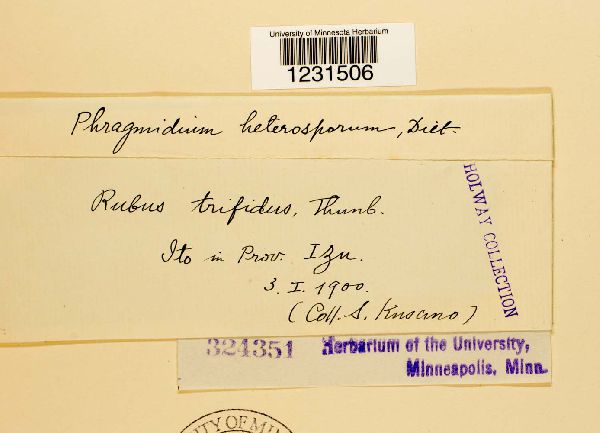 University of Minnesota Herbarium
1231506
Phragmidium heterosporum, Diet.
Rubus trifidus, Thunb.
Ito in Prov. Izu.
3. I. 1900.
(Coll. S. Kusano)
HOLWAY COLLECTION
324351 Herbarium of the University,
Minneapolis, Minn.
ITY OF MI